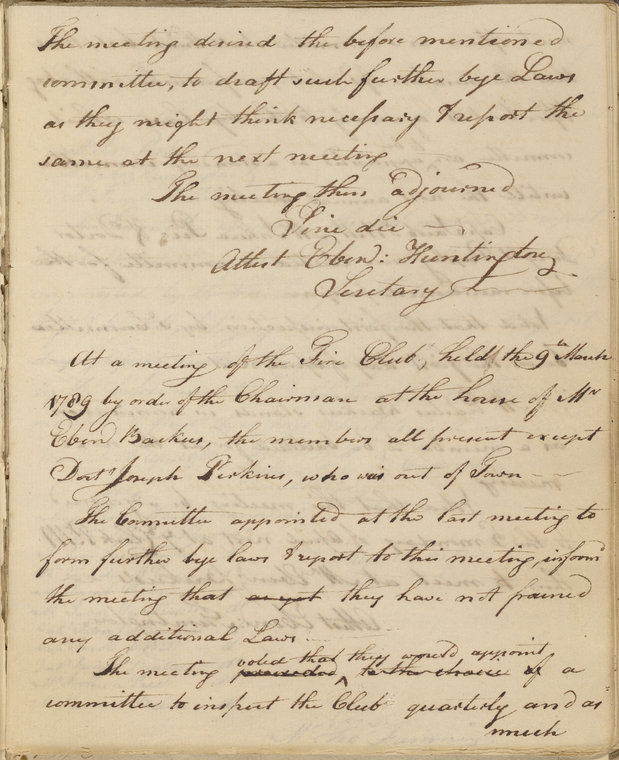 The meeting desired the before mentioned
committee, to draft such further bye Laws
as they might think necessary & report the
same at the next meeting
The meeting then adjourned
Sine die
Attest Eben: Huntington
Secretary
At a meeting of the Fire Club, held the 9th March
1789 by order of the Chairman at the house of Mr
Eben Backus, the members all present except
Doctr Joseph Perkins, who was out of Town
The Committee appointed at the last meeting to
form further bye laws & report to this meeting, inform
the meeting that as yet they have not framed
any additional Laws
voted that they would appoint
The meeting proceeded to the choice of a
committee to inspect the Club quarterly and as
much